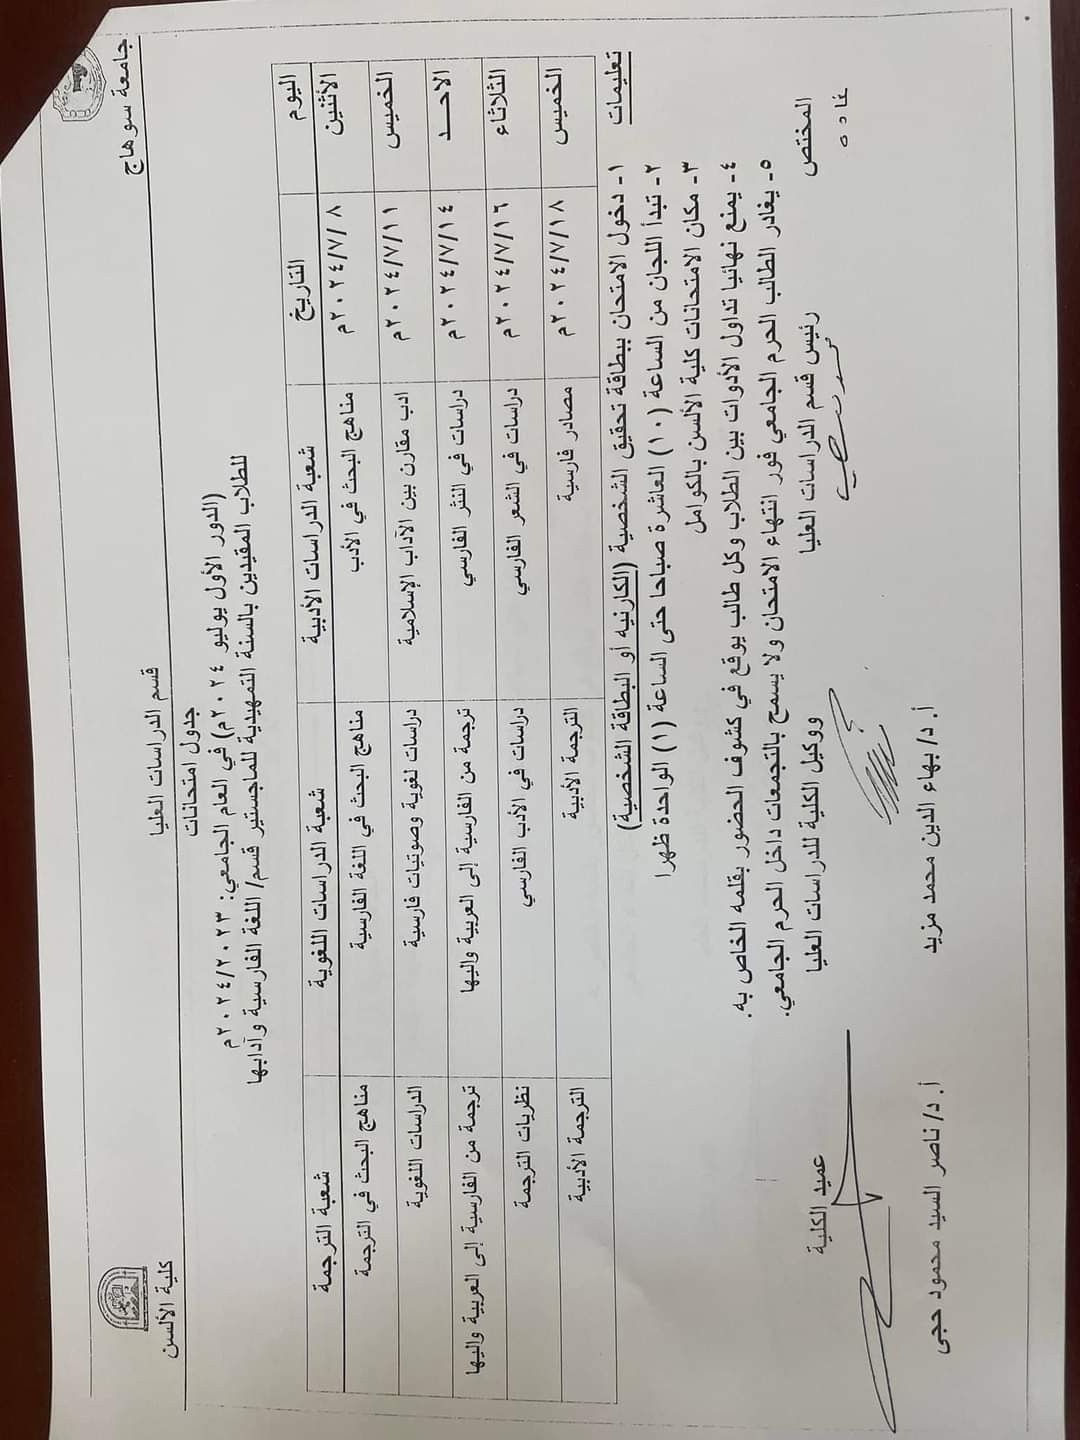 جامعة سوهاج
كلية الألسن
قسم الدراسات العليا
جدول امتحانات
(الدور الأول يوليو ٢٠٢٤م) في العام الجامعي: ٢٠٢٤/٢٠٢٣م
للطلاب المقيدين بالسنة التمهيدية للماجستير قسم/ اللغة الفارسية وآدابها
اليوم التاريخ شعبة الدراسات الأدبية شعبة الدراسات اللغوية شعبة الترجمة
الأثنين ٢٠٢٤/٧/٨م مناهج البحث في الأدب مناهج البحث في اللغة الفارسية مناهج البحث في الترجمة
الخميس ٢٠٢٤/٧/١١م ادب مقارن بين الآداب الإسلامية دراسات لغوية وصوتيات فارسية الدراسات اللغوية
الاحد ٢٠٢٤/٧/١٤م دراسات في النثر الفارسي ترجمة من الفارسية إلى العربية واليها ترجمة من الفارسية إلى العربية واليها
الثلاثاء ٢٠٢٤/٧/١٦م دراسات في الشعر الفارسي دراسات في الأدب الفارسي نظريات الترجمة
الخميس ٢٠٢٤/٧/١٨م مصادر فارسية الترجمة الأدبية الترجمة الأدبية
تعليمات
١- دخول الامتحان ببطاقة تحقيق الشخصية (الكارنيه أو البطاقة الشخصية)
٢- تبدأ اللجان من الساعة (١٠) العاشرة صباحا حتى الساعة (١) الواحدة ظهرا
٣- مكان الامتحانات كلية الألسن بالكوامل
٤- يمنع نهائيا تداول الأدوات بين الطلاب وكل طالب يوقع في كشوف الحضور بقلمه الخاص به.
٥- يغادر الطالب الحرم الجامعي فور انتهاء الامتحان ولا يسمح بالتجمعات داخل الحرم الجامعي.
المختص رئيس قسم الدراسات العليا ووكيل الكلية للدراسات العليا عميد الكلية
غاده
أ.د/ بهاء الدين محمد مزيد أ.د/ ناصر السيد محمود حجى